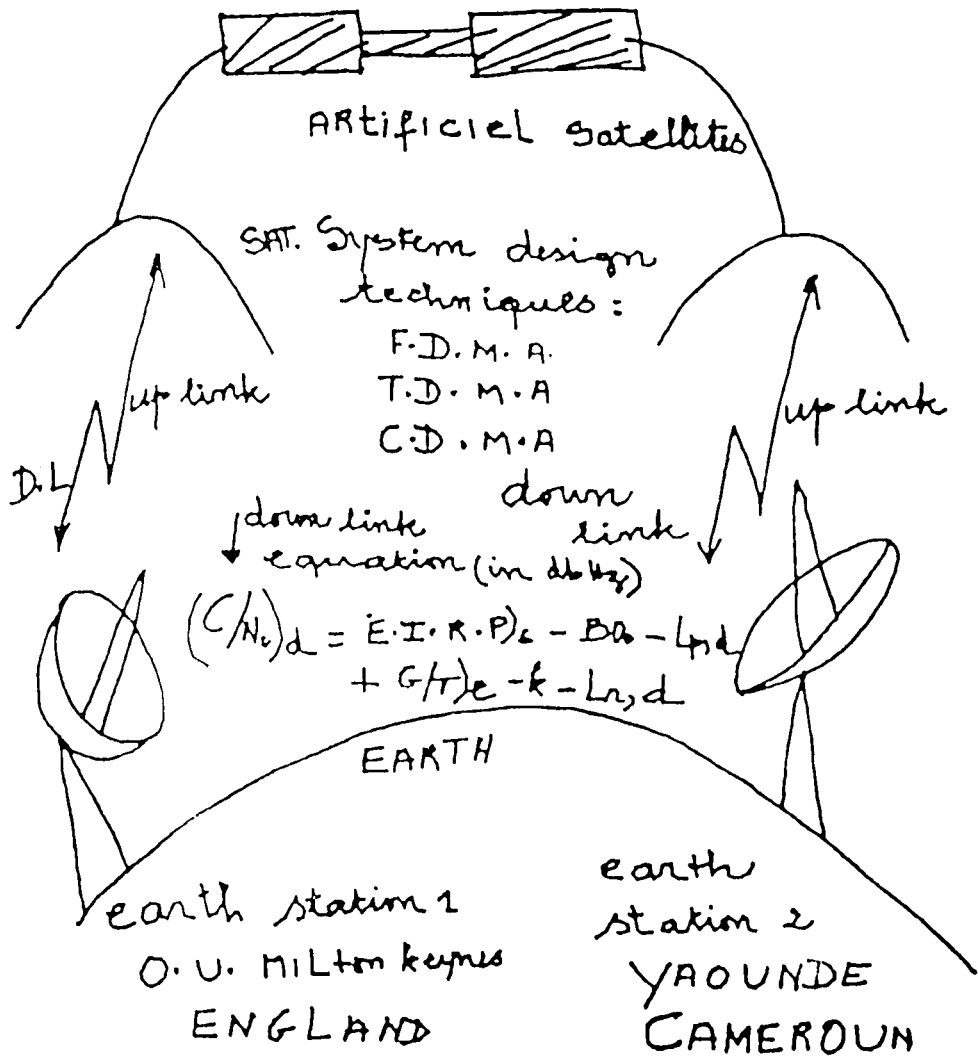 ARtificiel satellites
SAT. System design
techniques :
F.D.M.A.
T.D.M.A
C.D.M.A
up link
up link
D.L
down
link
down link
equation (in dbHz)
(C/N₀)d = E.I.R.P)s - BO₀ - Lp,d
+ G/T)e - k - Lr,d
EARTH
earth station 1
O.U. MILton keynes
ENGLAND
earth
station 2
YAOUNDE
CAMEROUN